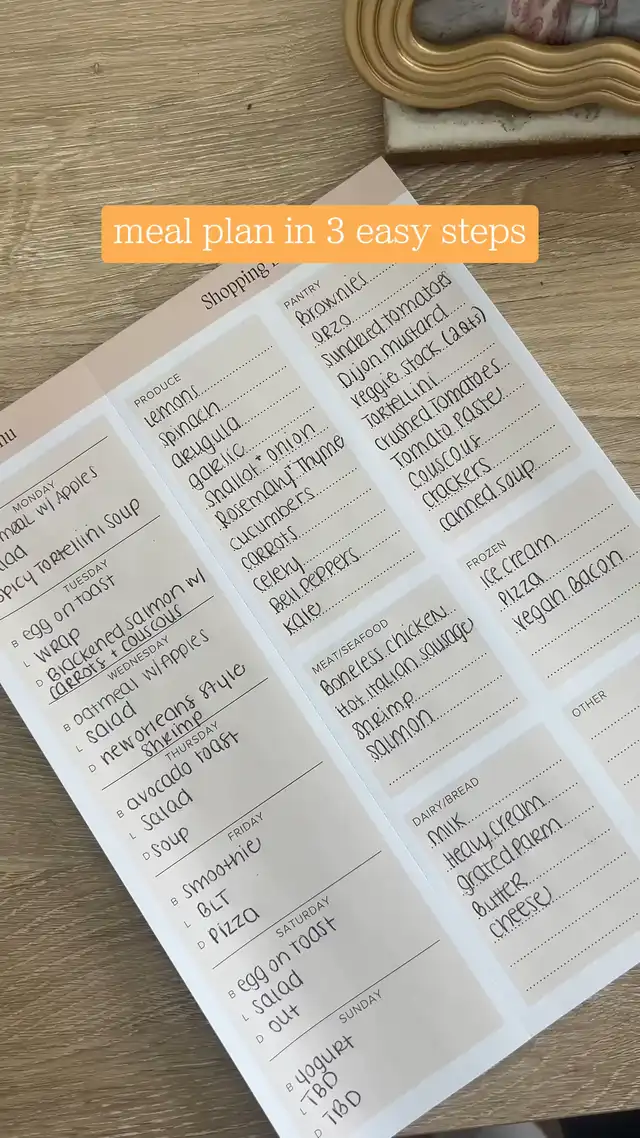 meal plan in 3 easy steps
Shopping
MONDAY
w/ Apples
Spicy Tortellini Soup
TUESDAY
B egg on toast
L wrap
D Blackened salmon w/
carrots + couscous
WEDNESDAY
B oatmeal w/Apples
L salad
D new orleans style
shrimp
THURSDAY
B avocado toast
L salad
D soup
FRIDAY
B smoothie
L BLT
D pizza
SATURDAY
B egg on toast
L salad
D out
SUNDAY
B yogurt
L TBD
D TBD
PRODUCE
Lemons
spinach
arugula
garlic
shallot + onion
Rosemary + Thyme
cucumbers
carrots
celery
Bell peppers
kale
MEAT/SEAFOOD
Boneless chicken
Hot Italian sausage
shrimp
salmon
DAIRY/BREAD
milk
Heavy cream
grated parm
butter
cheese
PANTRY
Brownies
orzo
sundried tomatoes
Dijon mustard
veggie stock (2qts)
Tortellini
crushed tomatoes
Tomato Paste
couscous
crackers
canned soup
FROZEN
Ice cream
pizza
vegan bacon
OTHER